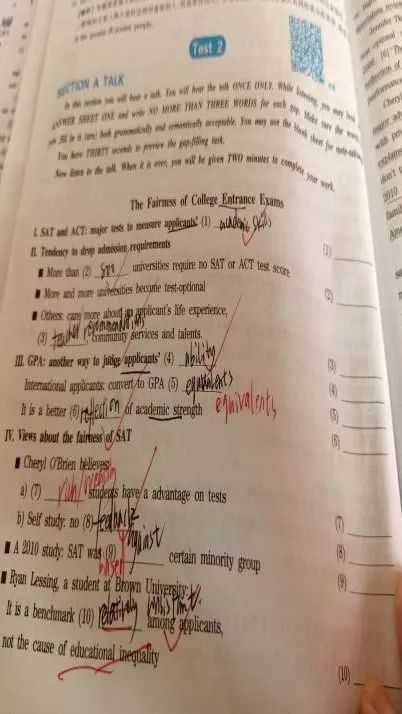 is the poorer & poorer people.
Test 2
SECTION A TALK
In this section you will hear a talk. You will hear the talk ONCE ONLY. While listening, you may look
ANSWER SHEET ONE and write NO MORE THAN THREE WORDS for each gap. Make sure the word
you fill in is (are) both grammatically and semantically acceptable. You may use the blank sheet for note-taking
You have THIRTY seconds to preview the gap-filling task.
Now listen to the talk. When it is over, you will be given TWO minutes to complete your work.
The Fairness of College Entrance Exams
I. SAT and ACT: major tests to measure applicants' (1) academic skills
(1)
II. Tendency to drop admission requirements
■ More than (2) universities require no SAT or ACT test score
(2)
■ More and more universities become test-optional
■ Others: care more about an applicant's life experience,
(3) teacher recommendations, community services and talents.
(3)
III. GPA: another way to judge applicants' (4) ability
(4)
International applicants: convert to GPA (5) equivalents
equivalents
(5)
It is a better (6) reflection of academic strength
(6)
IV. Views about the fairness of SAT
■ Cheryl O'Brien believes:
a) (7) rich/wealthy students have a advantage on tests
(7)
b) Self study: no (8) feedback
(8)
■ A 2010 study: SAT was (9) against certain minority group
biased
(9)
■ Ryan Lessing, a student at Brown University:
It is a benchmark (10) relatively consistent among applicants,
not the cause of educational inequality
(10)